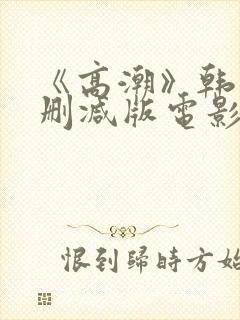 《高潮》韩
删减版电影
恨到歸時方始